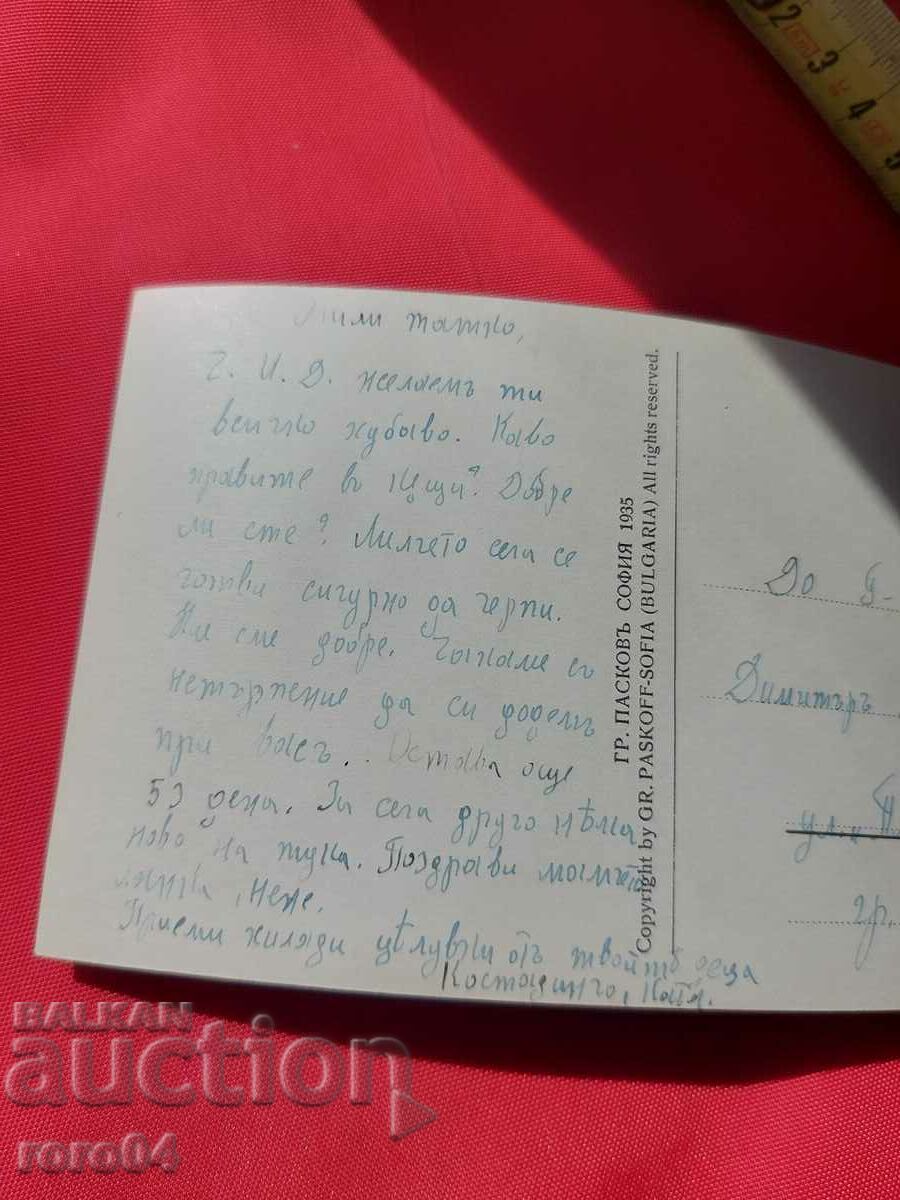 мили татко,
Ч. И. Д. желаемъ ти
всичко хубаво. Каво
правите въ кѫщи? Добре
ли сте? Лилчето сега се
готви сигурно да черпи.
Ние сме добре. Чакаме съ
нетърпение да си додемъ
при васъ.. Остава още
53 дена. За сега друго нѣма
ново на тука. Поздрави
Приеми хиляди цѣлувки отъ твойтѣ деца
Костадинчо, Катя.
ГР. ПАСКОВЪ СОФИЯ 1935
Copyright by GR. PASKOFF-SOFIA (BULGARIA) All rights reserved.
До Г-
Димитъръ
ул.
гр.
2 3 4 5
BALKAN
auction
roro04